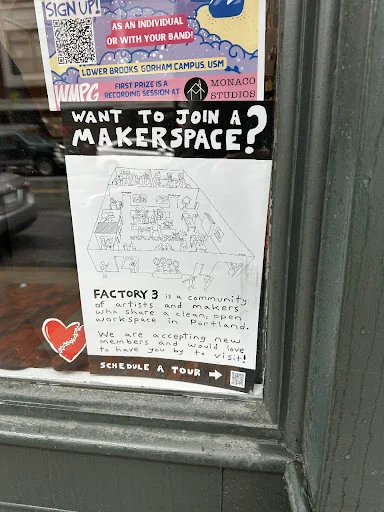 SIGN UP!
AS AN INDIVIDUAL
OR WITH YOUR BAND!
LOWER BROOKS, GORHAM CAMPUS, USM
WMPG
FIRST PRIZE IS A
RECORDING SESSION AT
MONACO
STUDIOS
WANT TO JOIN A
MAKERSPACE?
FACTORY 3 is a community
of artists and makers
who share a clean, open
workspace in Portland.
We are accepting new
members and would love
to have you by to visit!
SCHEDULE A TOUR →